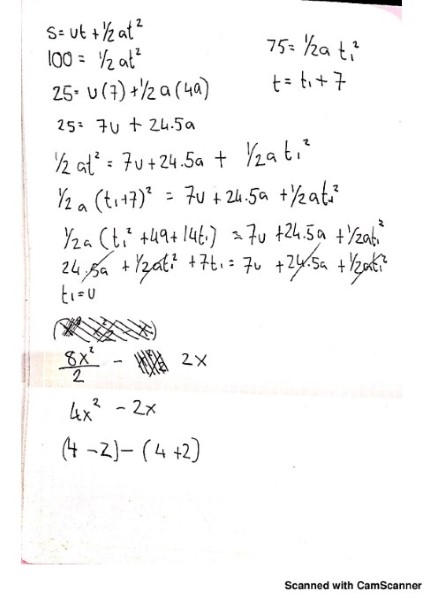 S= ut + 1/2 at²
100 = 1/2 at²
75 = 1/2 a t₁²
t = t₁ + 7
25 = u(7) + 1/2 a (49)
25 = 7u + 24.5a
1/2 at² = 7u + 24.5a + 1/2 a t₁²
1/2 a (t₁+7)² = 7u + 24.5a + 1/2 at₁²
1/2 a (t₁² + 49 + 14t₁) = 7u + 24.5a + 1/2 at₁²
24.5a + 1/2 at₁² + 7t₁ = 7u + 24.5a + 1/2 at₁²
t₁ = u
8x²/2 - 2x
4x² - 2x
(4 - 2) - (4 + 2)
Scanned with CamScanner